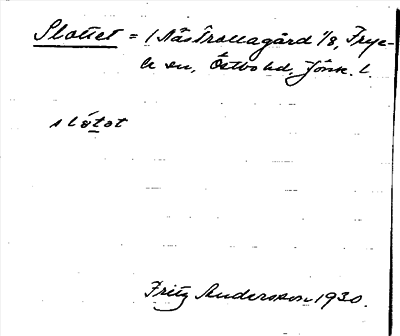 Slottet = 1 Näs Trollagård 1/8, Frye-
le sn, Östbo hd, Jönk. l.
slótət
Fritz Andersson 1930.